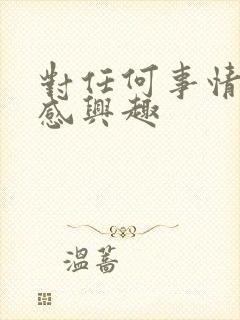 對任何事情
感興趣
溫蒿